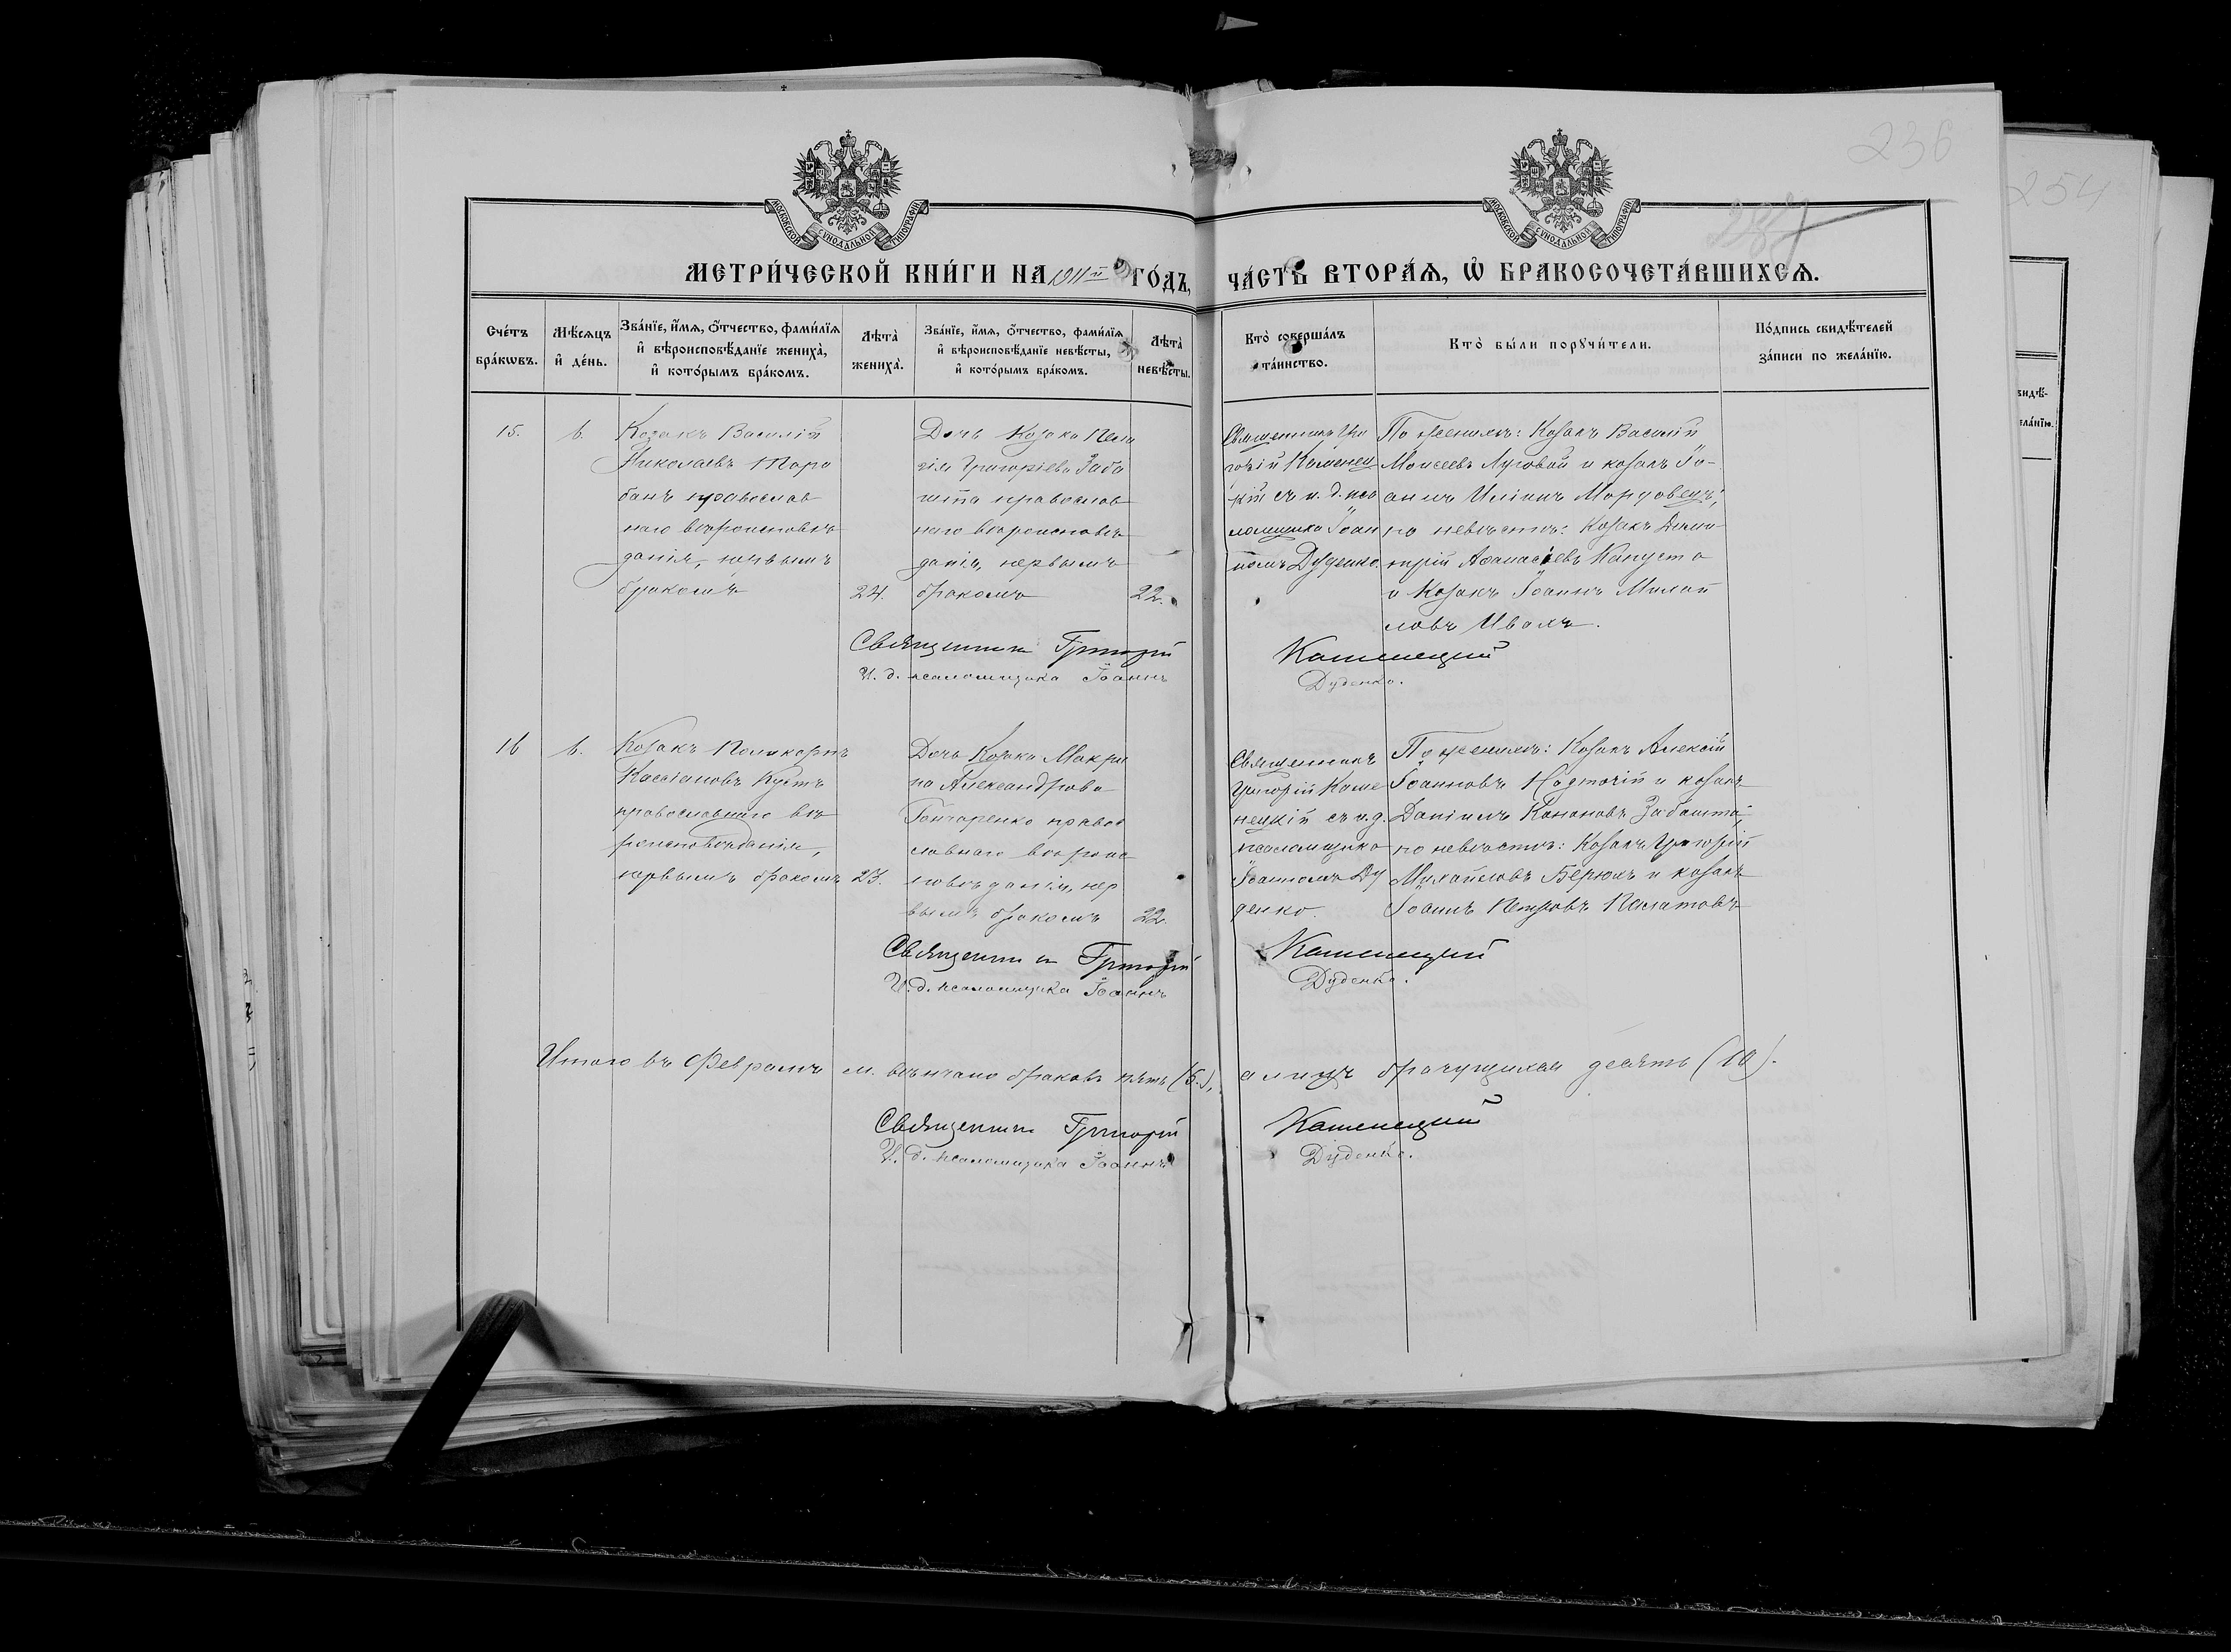 236
237
254
МОСКОВСКОЙ СУНОДАЛЬНОЙ ТИПОГРАФІИ
МОСКОВСКОЙ СУНОДАЛЬНОЙ ТИПОГРАФІИ
МЕТРИ́ЧЕСКОЙ КНИ́ГИ НА 1911й ГО́ДЪ,
ЧА́СТЬ ВТОРА́Я, Ѽ БРАКОСОЧЕТА́ВШИХСЯ.
Сче́тъ бра́кѡвъ.
Мѣ́сяцъ и҆ де́нь.
Зва́нїе, и҆́мя, ѻ҆́тчество, фами́лїя и҆ вѣроисповѣ́данїе жениха̀, и҆ кото́рымъ бра́комъ.
Лѣта̀ жениха̀.
Зва́нїе, и҆́мя, ѻ҆́тчество, фами́лїя и҆ вѣроисповѣ́данїе невѣ́сты, и҆ кото́рымъ бра́комъ.
Лѣта̀ невѣ́сты.
Кто̀ соверша́лъ та́инство.
Кто̀ бы́ли порꙋчи́тели.
По́дпись свидѣ́телей за́писи по жела́нїю.
15.
6.
Козакъ Василій
Николаевъ Тара
банъ православ
наго вѣроисповѣ
данія, первымъ
бракомъ
24.
Дочь Козака Пела
гія Григоріева Заба
шта православ
наго вѣроисповѣ
данія, первымъ
бракомъ
22.
Священникъ Гри
горій Каменец
кій съ и. д. пса
ломщика Іоан
номъ Дуденко.
По женихѣ: Козакъ Василій
Моисеевъ Луговой и козакъ Іо-
аннъ Иліинъ Мордовецъ;
по невѣстѣ: Козакъ Дими
трій Аѳанасіевъ Капуста
и Козакъ Іоаннъ Михай
ловъ Ивахъ.
Священникъ Григорій Каменецкий
И. д. псаломщика Іоаннъ Дуденко.
16
6.
Козакъ Поликарпъ
Кассіановъ Кустъ
православнаго вѣ
роисповѣданія,
первымъ бракомъ
23.
Дочь Козака Макри
на Александрова
Гончаренко правос
лавнаго вѣроис
повѣданія, пер
вымъ бракомъ
22.
Священникъ
Григорій Каме
нецкій съ и. д.
псаломщика
Іоанномъ Ду
денко.
По женихѣ: Козакъ Алексій
Іоанновъ Подточій и козакъ
Даніилъ Кононовъ Забашта,
по невѣстѣ: Козакъ Григорій
Михайловъ Берюхъ и козакъ
Іоаннъ Петровъ
Священникъ Григорій Каменецкий
И. д. псаломщика Іоаннъ Дуденко.
Итого въ Февралѣ м. вѣнчано браковъ пять (5.), а лицъ брачущихся десять (10).
Священникъ Григорій Каменецкий
И. д. псаломщика Іоаннъ Дуденко.